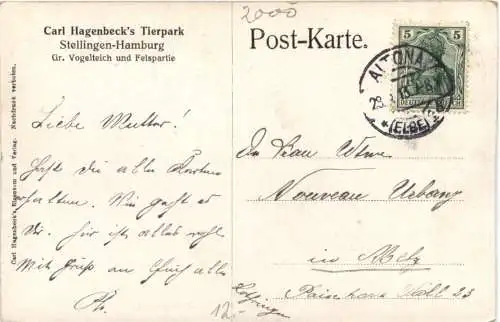 Carl Hagenbeck's Tierpark
Stellingen-Hamburg
Gr. Vogelteich und Felspartie
Carl Hagenbeck's, Eigentum und Verlag. Nachdruck verboten.
Liebe Mutter!
Hast du alle Karten
erhalten. Wie geht es
Dir. Hier ist alles wohl
Mit Gruß an Euch alle
Ph.
2000
Post-Karte.
5 5
ALTONA
*(ELBE)
An Frau Wtwe
Nouveau Urbany
in Metz
Lothringen
12.-